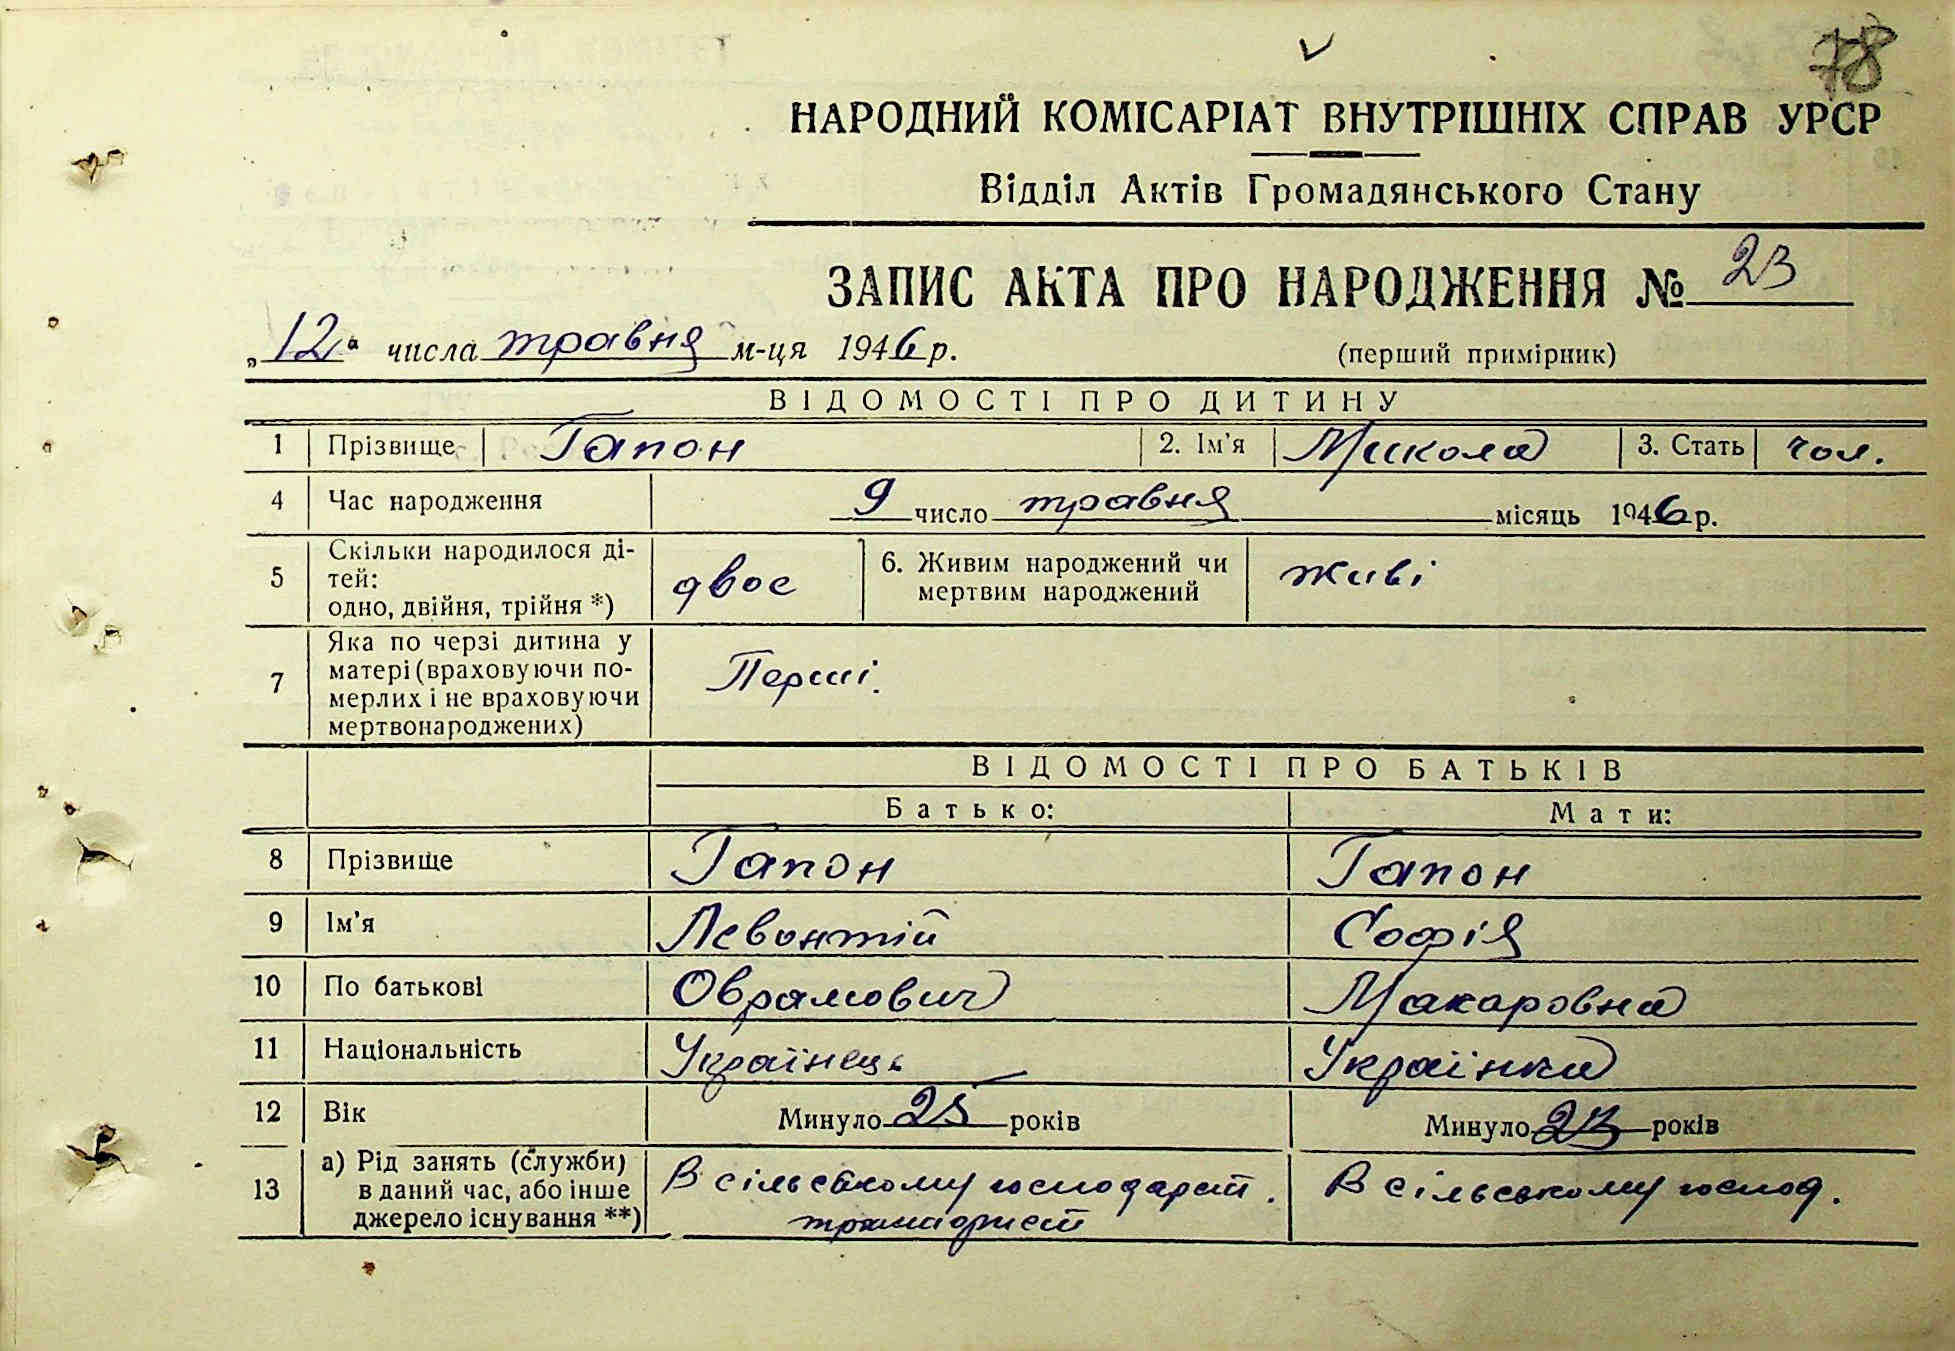 78
НАРОДНИЙ КОМІСАРІАТ ВНУТРІШНІХ СПРАВ УРСР
Відділ Актів Громадянського Стану
ЗАПИС АКТА ПРО НАРОДЖЕННЯ № 23
„12“ числа травня м-ця 1946 р.
(перший примірник)
ВІДОМОСТІ ПРО ДИТИНУ
1 Прізвище Гапон 2. Ім'я Микола 3. Стать чол.
4 Час народження 9 число травня місяць 1946 р.
5 Скільки народилося ді-
тей:
одно, двійня, трійня *) двоє
6. Живим народжений чи
мертвим народжений живі
7 Яка по черзі дитина у
матері (враховуючи по-
мерлих і не враховуючи
мертвонароджених) Перші.
ВІДОМОСТІ ПРО БАТЬКІВ
Батько: Мати:
8 Прізвище Гапон Гапон
9 Ім'я Лєвонтій Софія
10 По батькові Оврамович Макаровна
11 Національність Українець Українка
12 Вік Минуло 25 років Минуло 23 років
13 а) Рід занять (служби)
в даний час, або інше
джерело існування **) В сільському господарст. В сільському господ.